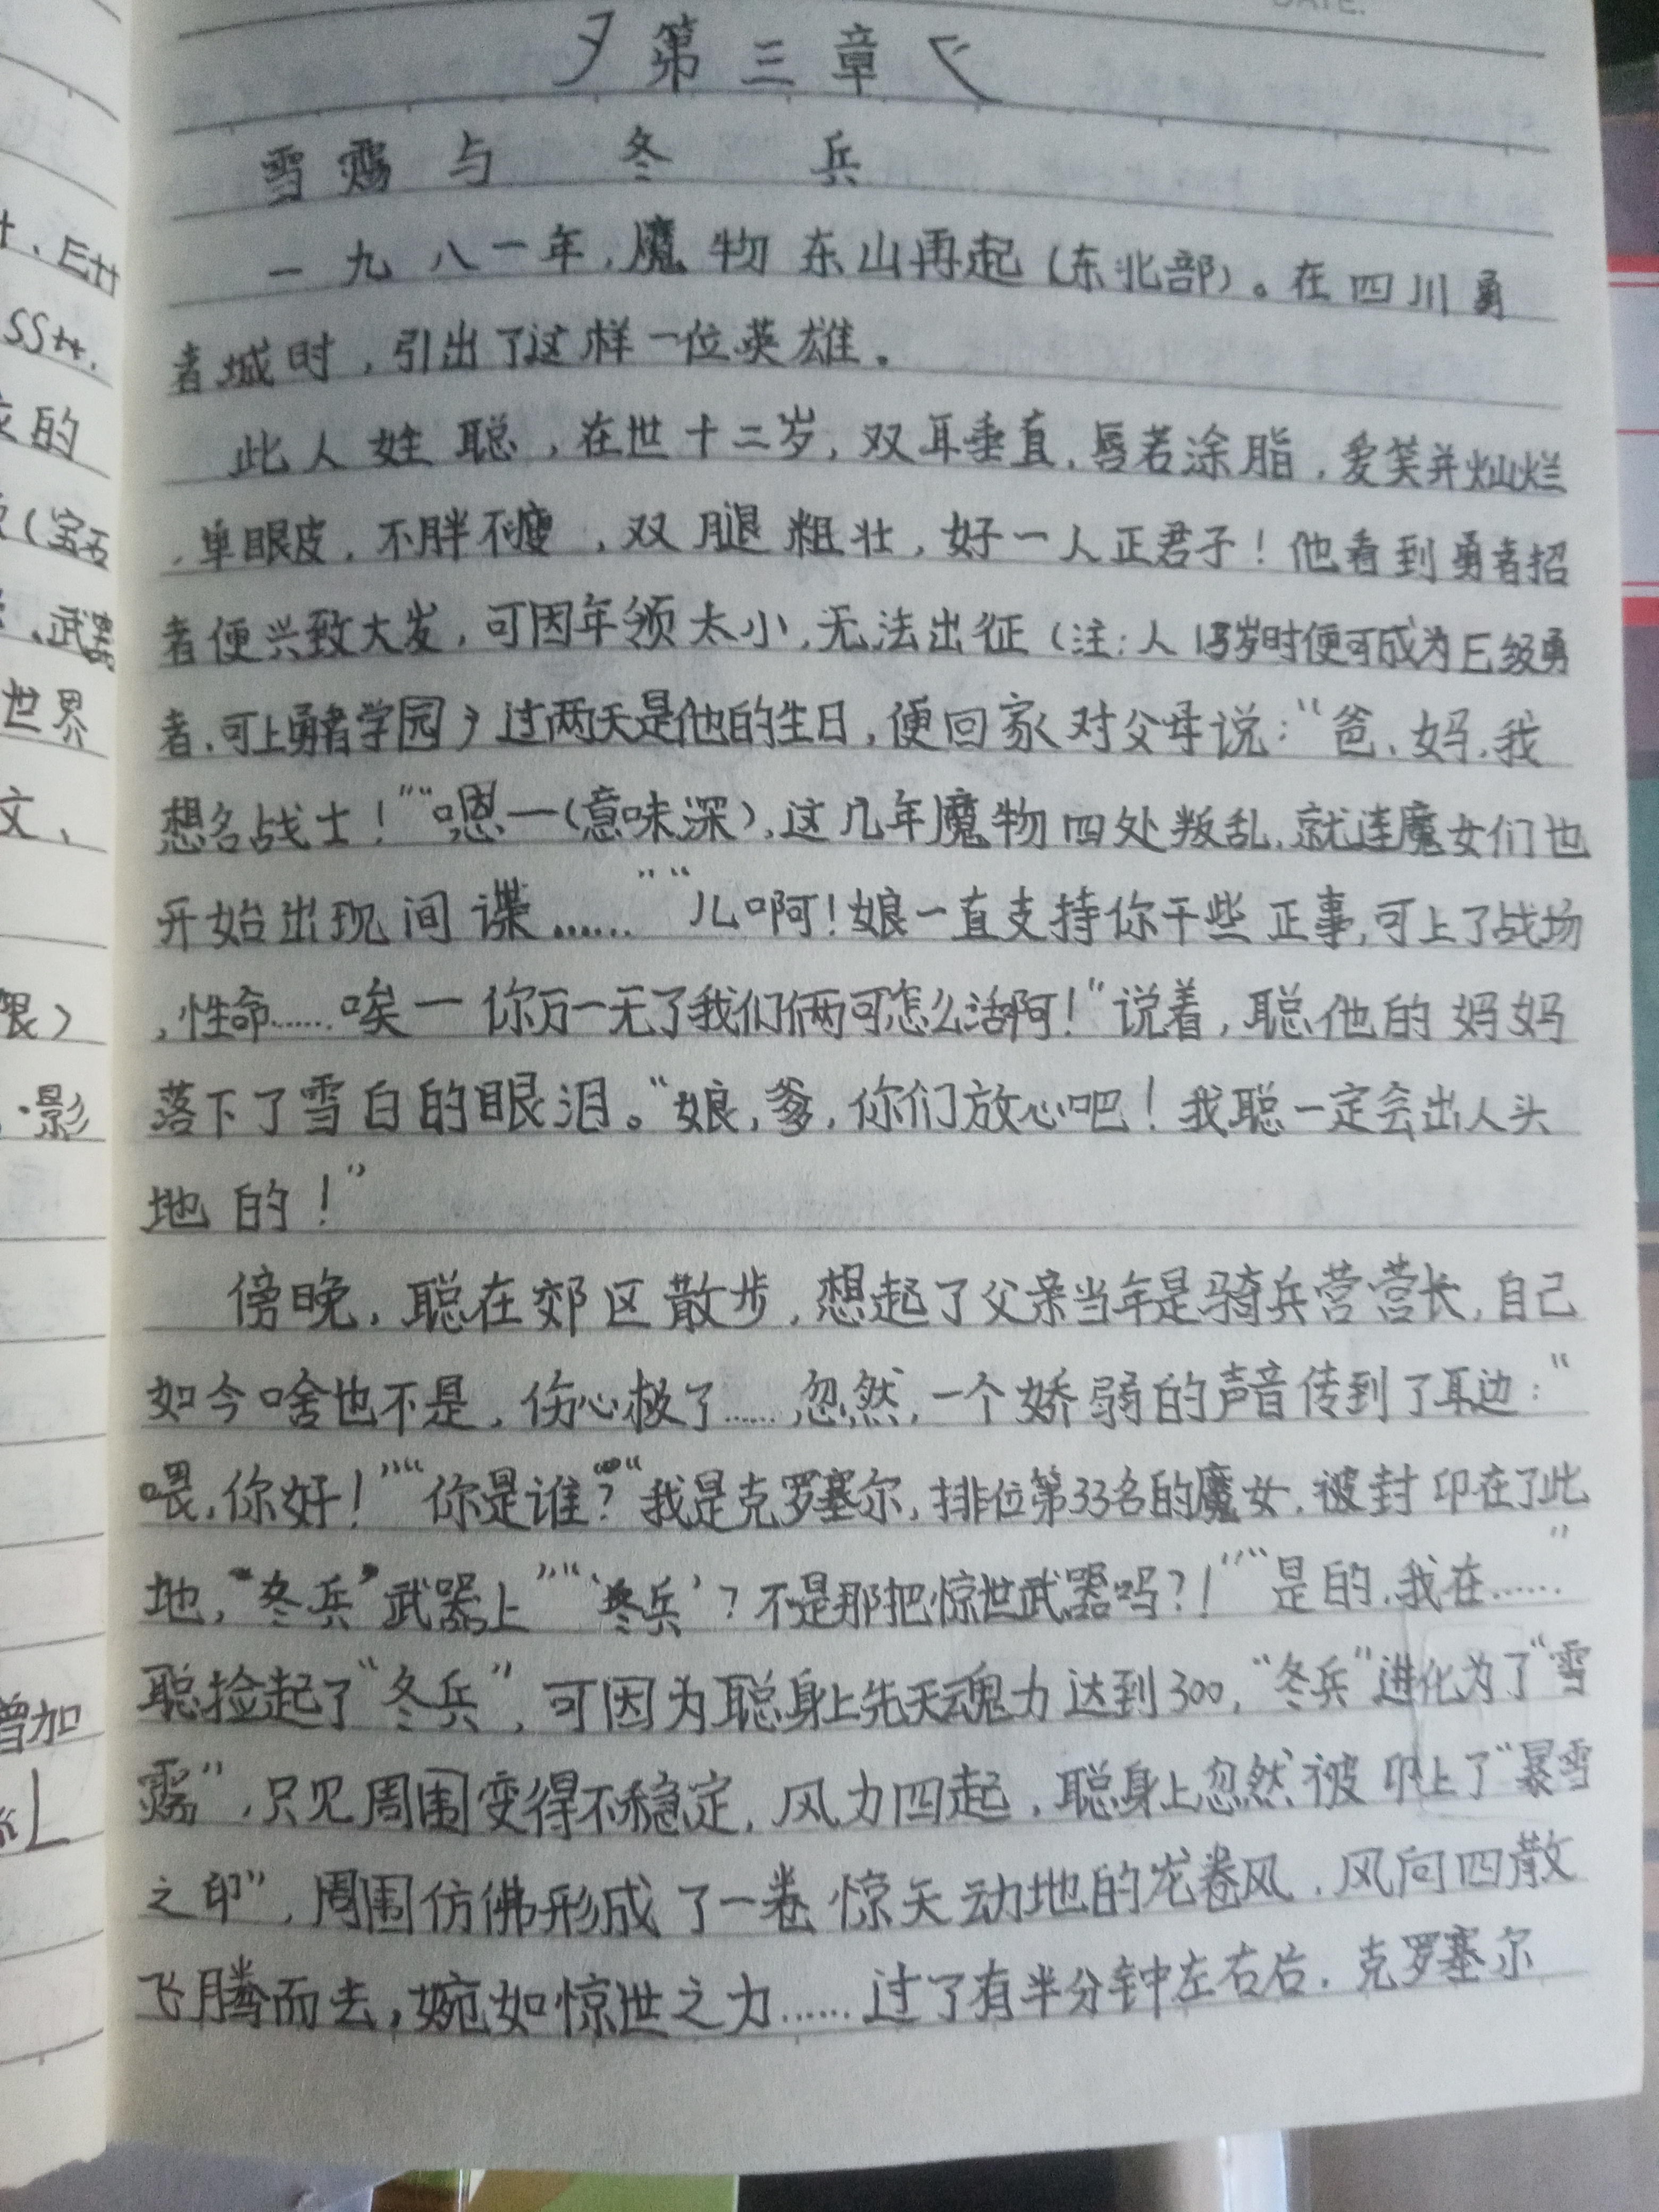 第三章
雪霭与冬兵
一九八一年，魔物东山再起（东北部）。在四川勇
者城时，引出了这样一位英雄。
此人姓聪，在世十二岁，双耳垂直，唇若涂脂，爱笑并灿烂
，单眼皮，不胖不瘦，双腿粗壮，好一人正君子！他看到勇者招
者便兴致大发，可因年领太小，无法出征（注：人13岁时便可成为E级勇
者，可上勇者学园）过两天是他的生日，便回家对父母说：“爸、妈，我
想名战士！”“嗯一（意味深），这几年魔物四处叛乱，就连魔女们也
开始出现间谍……”“儿啊！娘一直支持你干些正事，可上了战场
，性命……唉一你万一无了我们俩可怎么活啊！”说着，聪他的妈妈
落下了雪白的眼泪。“娘，爹，你们放心吧！我聪一定会出人头
地的！”
傍晚，聪在郊区散步，想起了父亲当年是骑兵营营长，自己
如今啥也不是，伤心极了……忽然，一个娇弱的声音传到了耳边：“
喂，你好！”“你是谁？”“我是克罗塞尔，排位第33名的魔女，被封印在了此
地，“冬兵”武器上”“‘冬兵’？不是那把惊世武器吗？！”“是的，我在……”
聪捡起了“冬兵”，可因为聪身上先天魂力达到300，“冬兵”进化为了“雪
霭”，只见周围变得不稳定，风力四起，聪身上忽然被印上了“暴雪
之印”，周围仿佛形成了一卷惊天动地的龙卷风，风向四散
飞腾而去，婉如惊世之力……过了有半分钟左右后，克罗塞尔
E++
SS++
的
武器
世界
文、
影
增加